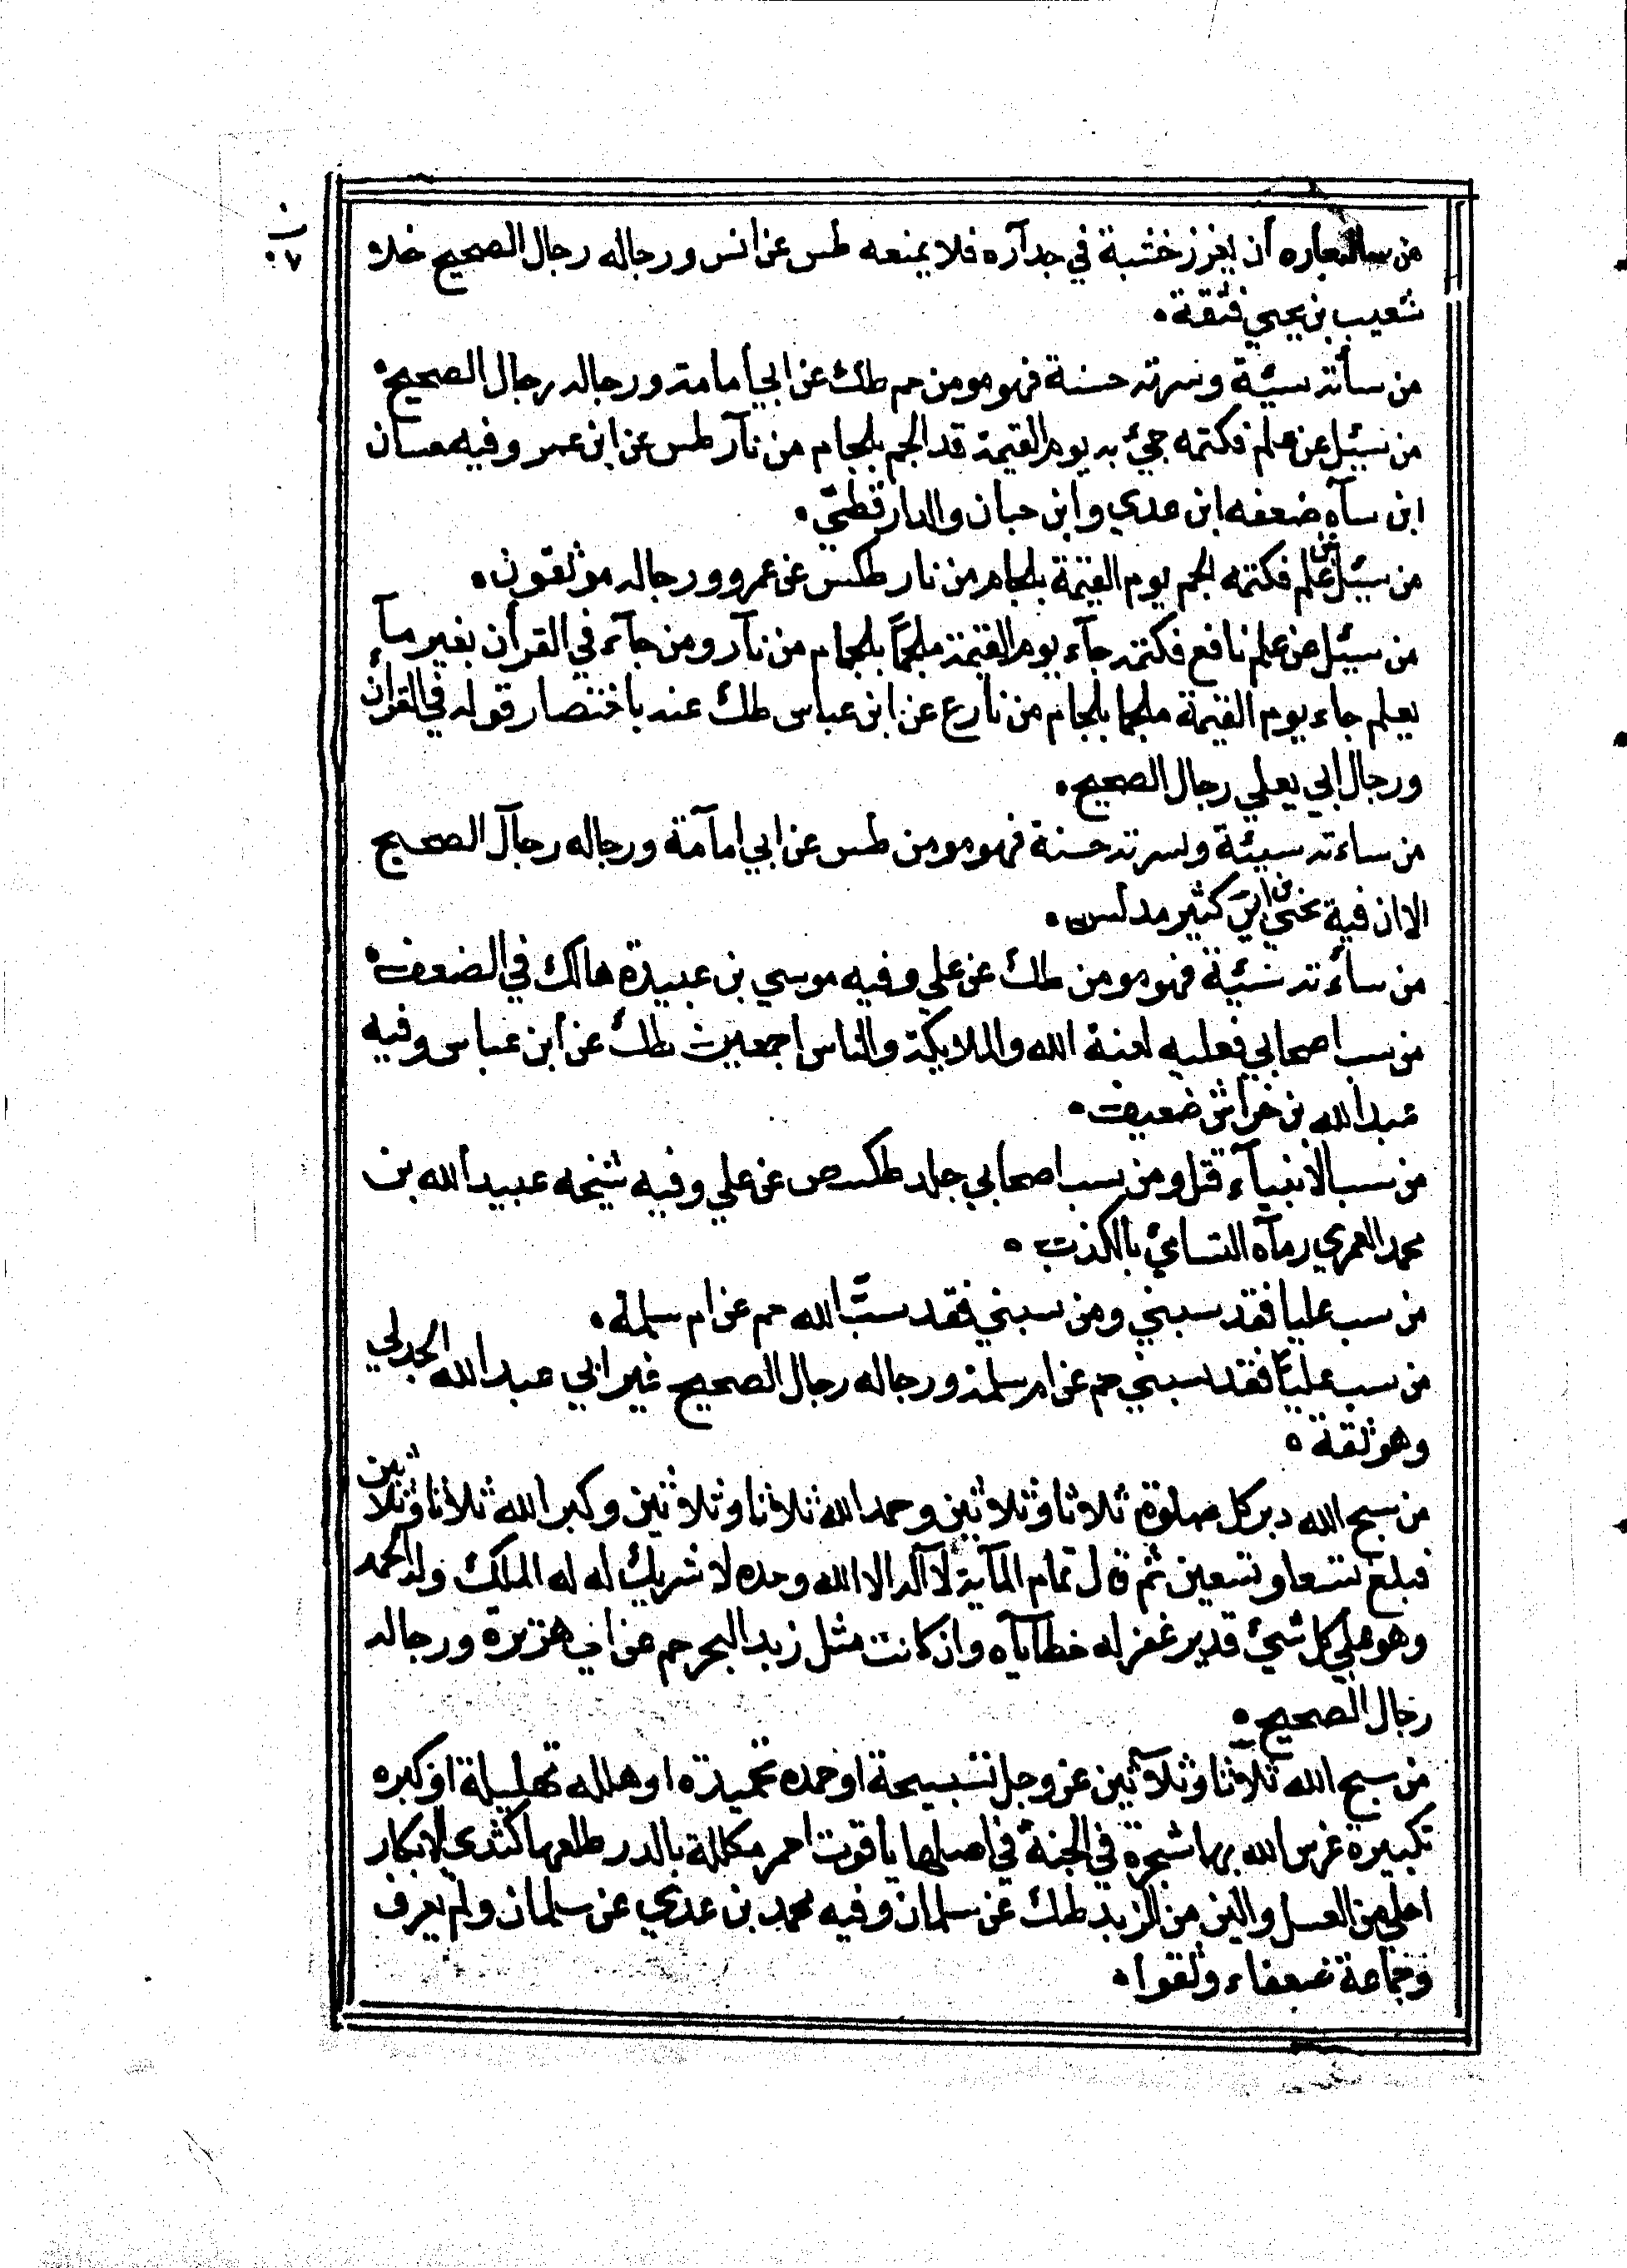 من ساله جاره أن يغرز خشبة في جداره فلا يمنعه طس عن انس ورجاله رجال الصحيح خلا
شعيب بن يحيي فثقة
من سأته سيئة وسرته حسنة فهو مومن حم طك عن ابي أمامة ورجاله رجال الصحيح
من سيئل عن علم فكتمه جيئ به يوم القيمة قد الجم بلجام من نآر طس عن ابن عمر وفيه حسان
ابن سآه ضعفه ابن عدي وابن حبان والدارقطني
من سيئل عن علم فكتمه لجم يوم القيمة بلجام من نار طكس عن عمرو ورجاله موثقون
من سيئل عن علم نافع فكتمه جآء يوم القيمة ملجمًا بلجام من نآر ومن جآء في القرأن بغير مآ
يعلم جاء يوم القيمة ملجما بلجام من نار ع عن ابن عباس طك عنه باختصار قوله في القرأن
ورجال ابي يعلي رجال الصحيح
من ساءته سيئة وسرته حسنة فهو مومن طس عن ابي امآمة ورجاله رجآل الصحيح
الا ان فيه يحيي ابن كثير مدلس
من سأءته سئية فهو مومن طك عن علي وفيه موسي بن عبيدة هالك في الضعف
من سب اصحابي فعليه لعنة الله والملايكة والناس اجمعين طك عن ابن عباس وفيه
عبد الله بن خراش ضعيف
من سب الانبيآء قتل ومن سب اصحابي جلد طكسص عن علي وفيه شيخه عبيد الله بن
محمد العمري رمآه النسايئ بالكذب
من سب عليا فقد سبني ومن سبني فقد سبّ الله حم عن ام سلمة
من سب عليًا فقد سبني حم عن ام سلمة ورجاله رجال الصحيح غير ابي عبد الله الجدلي
وهو ثقة
من سبح الله دبر كل صلوة ثلاثا وثلاثين وحمد الله ثلاثا وثلاثين وكبر الله ثلاثا وثلاثين
فبلغ تسعا وتسعين ثم قال تمام المآية لآ اله الا الله وحده لا شريك له له الملك وله الحمد
وهو علي كل شيئ قدير غفر له خطآيآه وان كانت مثل زبد البحر حم عن ابي هريرة ورجاله
رجال الصحيح
من سبح الله ثلاثا وثلآثين عز وجل تسبيحة او حمده تحميدة او هلله تهليلة او كبره
تكبيرة غرس الله بها شجرة في الجنة في اصلها ياقوت احمر مكللة بالدر طلعها كثدي الابكار
احلي من العسل والين من الزبد طك عن سلمان وفيه محمد بن عدي عن سلمان ولم يعرف
وجماعة ضعفاء وثقوا